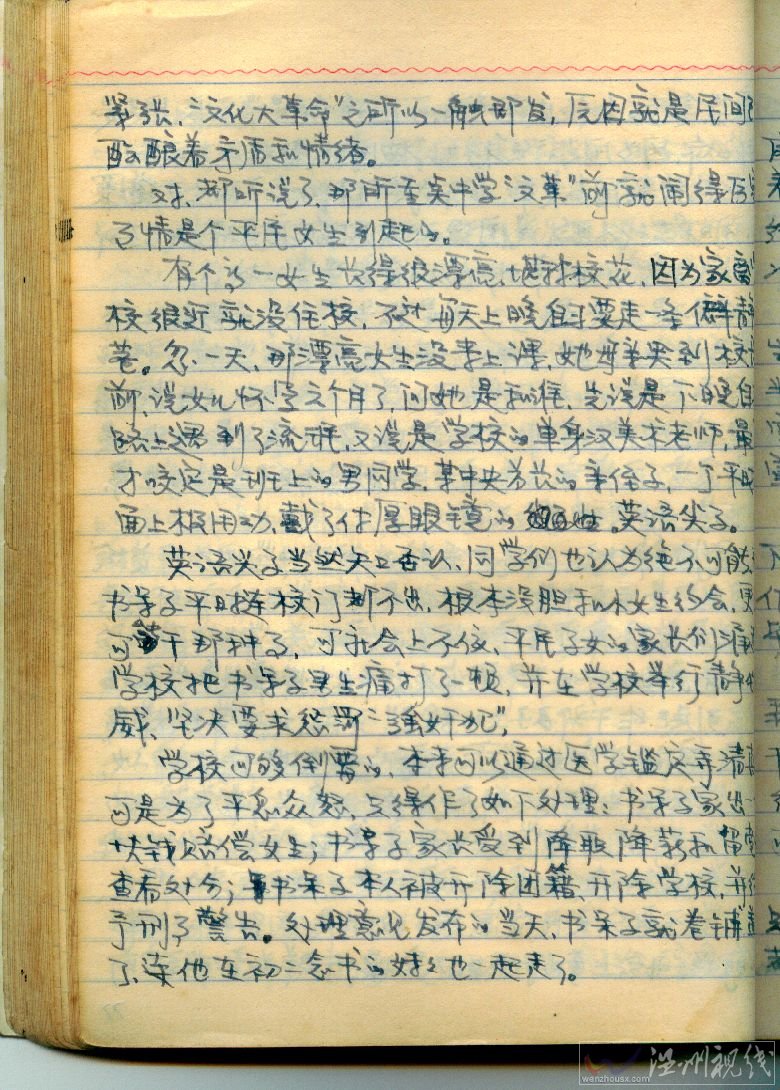 紧张，“文化大革命”之所以一触即发，原因就是民间
酝酿着矛盾和情绪。
对，都听说了，那所重点中学“文革”前就闹得厉
了情是个平民女生引起的。
有个高一女生长得很漂亮，堪称校花，因为家离
校很近就没住校，不过每天上晚自习要走一条僻静
巷。忽一天，那漂亮女生没来上课，她母亲哭到校
前，说女儿怀孕三个月了，问她是和谁，先说是下晚自
路上遇到了流氓，又说是学校的单身汉美术老师，最
才咬定是班上的男同学，某中央首长的亲侄子，一个平时
面上极用功，戴了付厚眼镜的 英语尖子。
英语尖子当然矢口否认，同学们也认为绝不可能，
书呆子平日连校门都不出，根本没胆和女生约会，更
可 干那种事，可家会上不依，平民子女的家长们
学校把书呆子男生痛打了一顿，并在学校举行静
威，坚决要求惩罚“强奸犯”，
学校可够倒霉的，本来可以通过医学鉴定弄清
可是为了平息众怒，只得作了如下处理：书呆子家出
块钱赔偿女生；书呆子家长受到降职降薪和留党
查看处分；书呆子本人被开除团籍、开除学校，并给
予刑事警告。处理意见发布的当天，书呆子就卷铺盖
了，连他在初二念书的妹妹也一起走了。
温州视线
wenzhousx.com